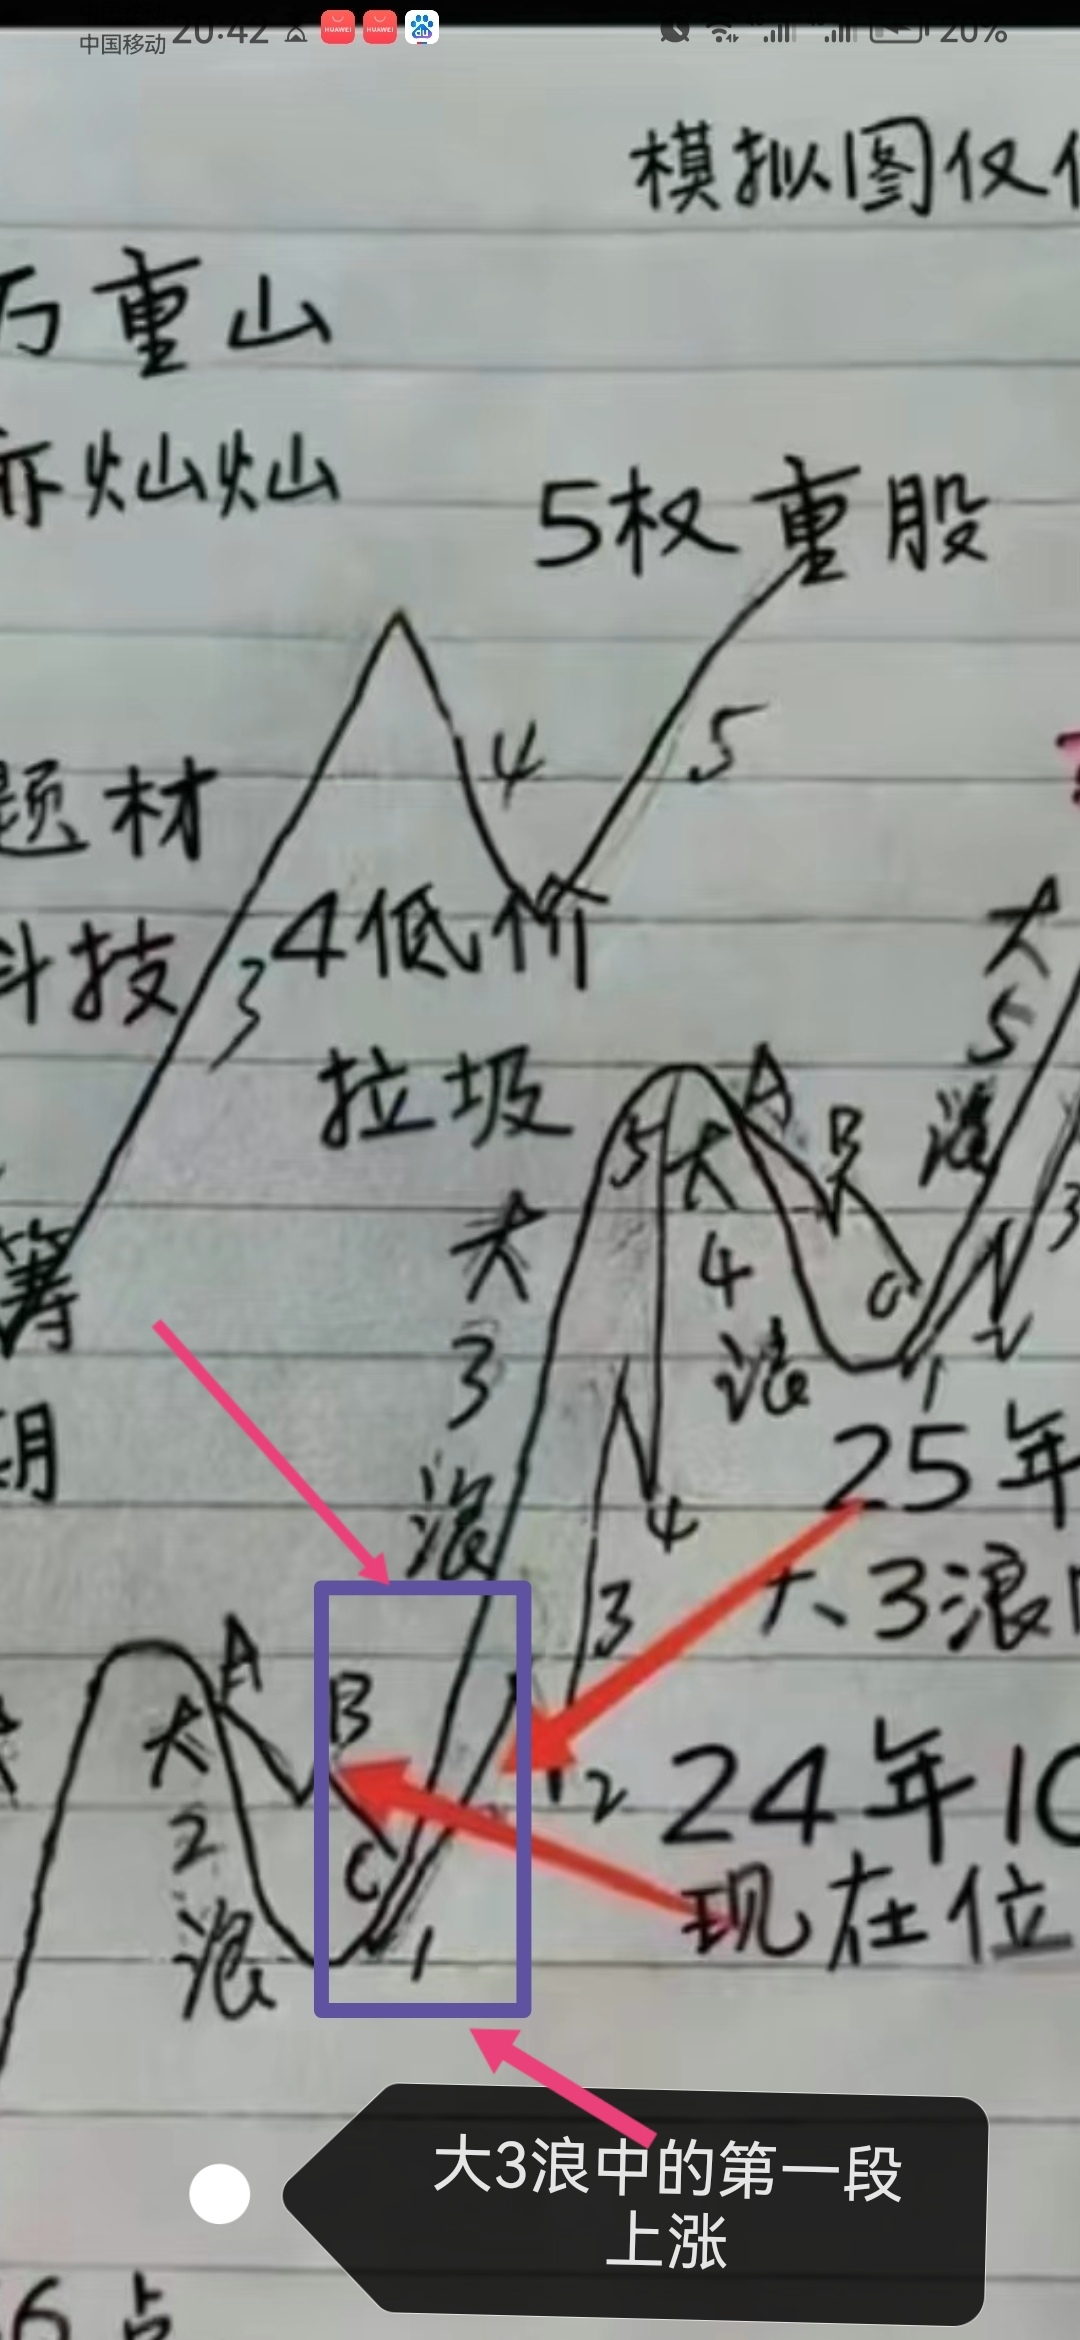 中国移动 20:42 HUAWEI HUAWEI du 20%
模拟图仅
万重山
亦灿灿
5权重股
4
5
题材
科技
3
4低价
垃圾
大3浪
5
大4浪
A
B
C
大5浪
1
2
3
筹
期
25年
大3浪
4
3
A
B
C
大2浪
1
2
24年10
现在位
大3浪中的第一段
上涨
6点